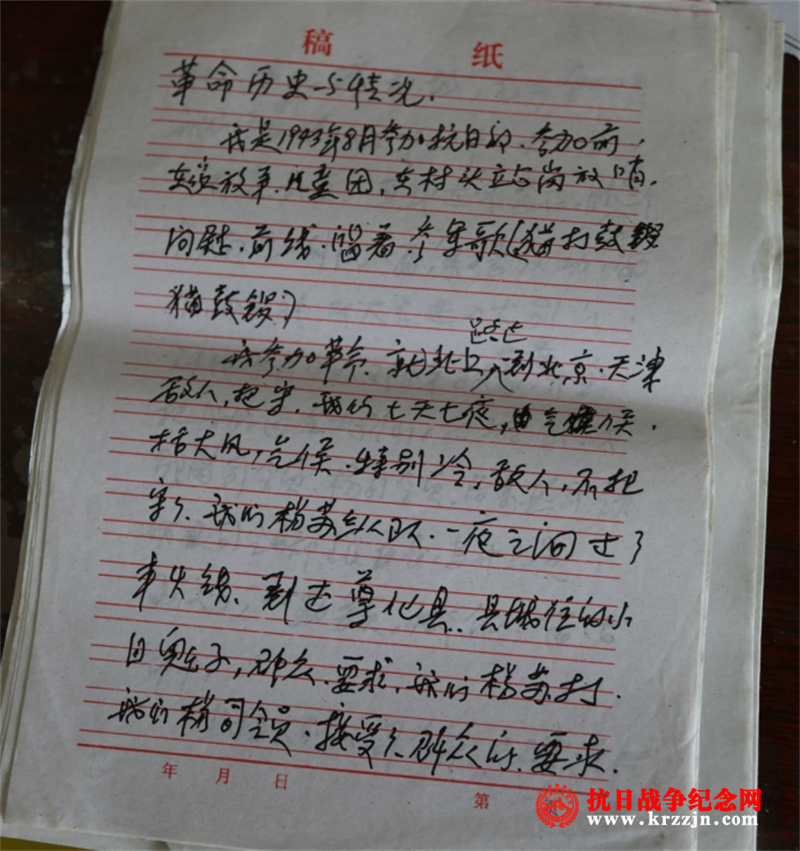 稿 纸
革命历史与情况.
我是1943年8月参加抗日的.参加前.
女放军.儿童团,在村头立占岗放哨.
问慰.前线.唱着.参军歌(猫打鼓
猫鼓锣)
我参加革命.就北上到北京.天津
敌人,把守.我们七天七夜,气候.
括大风,气候.特别冷,敌人,不把
守了.我们杨苏纵队.一夜之间过了
火线.到达尊化县.县城住的小
日鬼子,群众.要求.我们杨苏打.
我们杨司令员.接受了.群众的.要求.
年 月 日
第
抗日战争纪念网
www.krzzjn.com